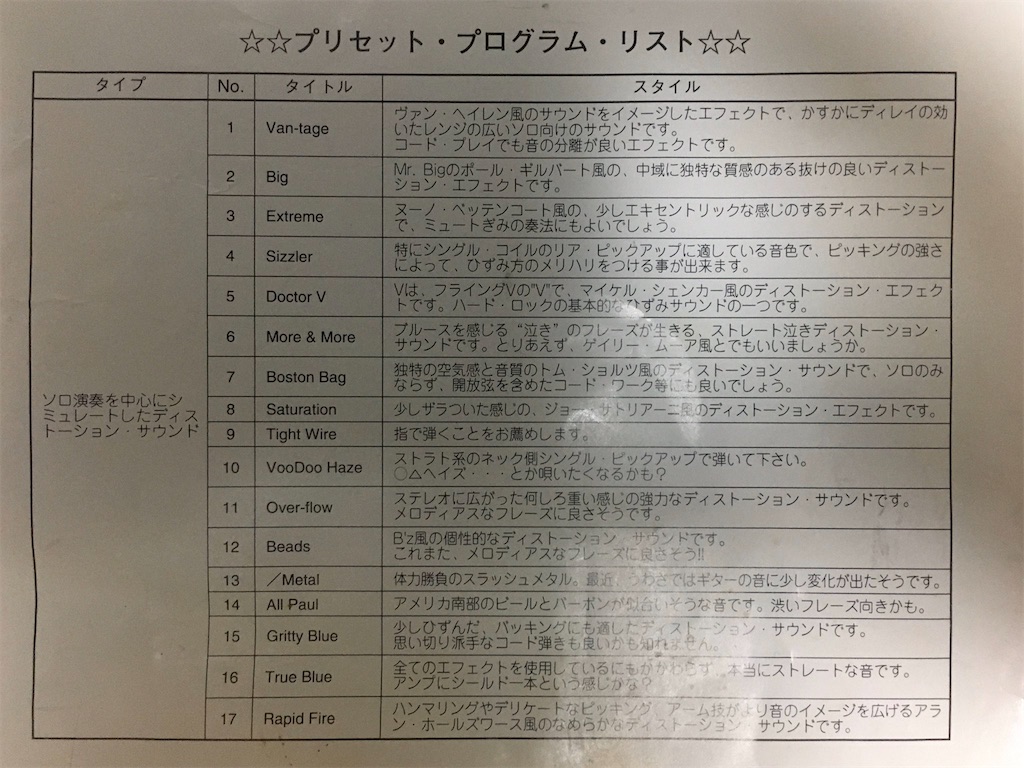 ☆☆プリセット・プログラム・リスト☆☆
タイプ No. タイトル スタイル
ソロ演奏を中心にシ
ミュレートしたディス
トーション・サウンド
1 Van-tage ヴァン・ヘイレン風のサウンドをイメージしたエフェクトで、かすかにディレイの効
いたレンジの広いソロ向けのサウンドです。
コード・プレイでも音の分離が良いエフェクトです。
2 Big Mr. Bigのポール・ギルバート風の、中域に独特な質感のある抜けの良いディストー
ション・エフェクトです。
3 Extreme ヌーノ・ベッテンコート風の、少しエキセントリックな感じのするディストーション
で、ミュートぎみの奏法にもよいでしょう。
4 Sizzler 特にシングル・コイルのリア・ピックアップに適している音色で、ピッキングの強さ
によって、ひずみ方のメリハリをつける事が出来ます。
5 Doctor V Vは、フライングVの"V"で、マイケル・シェンカー風のディストーション・エフェク
トです。ハード・ロックの基本的なひずみサウンドの一つです。
6 More & More ブルースを感じる“泣き”のフレーズが生きる、ストレート泣きディストーション・
サウンドです。とりあえず、ゲイリー・ムーア風とでもいいましょうか。
7 Boston Bag 独特の空気感と音質のトム・ショルツ風のディストーション・サウンドで、ソロのみ
ならず、開放弦を含めたコード・ワーク等にも良いでしょう。
8 Saturation 少しザラついた感じの、ジョー・サトリアーニ風のディストーション・エフェクトです。
9 Tight Wire 指で弾くことをお薦めします。
10 VooDoo Haze ストラト系のネック側シングル・ピックアップで弾いて下さい。
○△ヘイズ・・・とか唄いたくなるかも?
11 Over-flow ステレオに広がった何しろ重い感じの強力なディストーション・サウンドです。
メロディアスなフレーズに良さそうです。
12 Beads B'z風の個性的なディストーション・サウンドです。
これまた、メロディアスなフレーズに良さそう!!
13 ／Metal 体力勝負のスラッシュメタル。最近、うわさではギターの音に少し変化が出たそうです。
14 All Paul アメリカ南部のビールとバーボンが似合いそうな音です。渋いフレーズ向きかも。
15 Gritty Blue 少しひずんだ、バッキングにも適したディストーション・サウンドです。
思い切り派手なコード弾きも良いかも知れません。
16 True Blue 全てのエフェクトを使用しているにもかかわらず、本当にストレートな音です。
アンプにシールド一本という感じかな?
17 Rapid Fire ハンマリングやデリケートなピッキング、アーム技がより音のイメージを広げるアラ
ン・ホールズワース風のなめらかなディストーション・サウンドです。